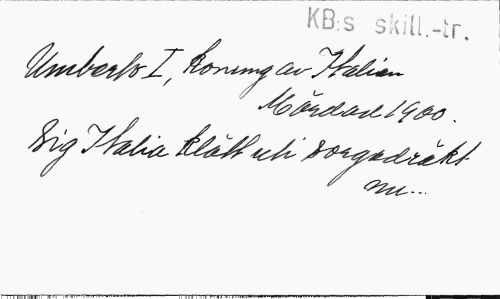 KB:s skill.-tr.
Umberto I, konung av Italien
Mördad 1900.
Sig Italia klätt uti sorgedräkt
nu...